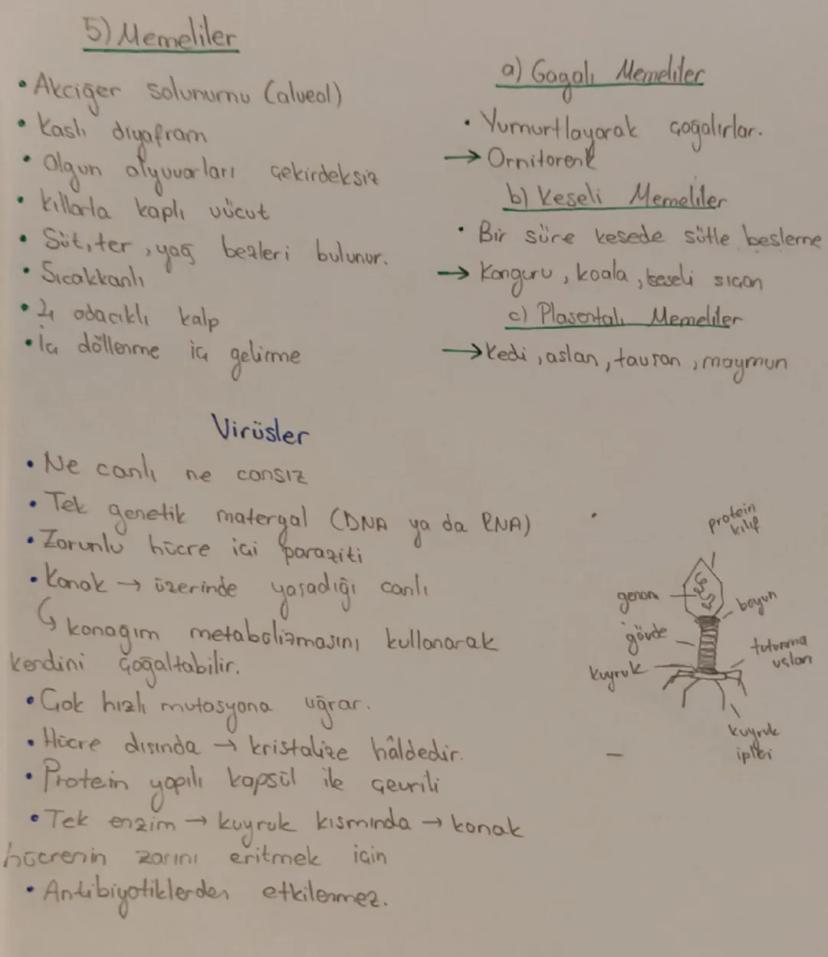 5) Memeliler
• Akciğer solunumu (alveol)
• Kaslı diyafram
• Olgun alyuvarları çekirdeksiz
• Kıllarla kaplı vücut
• Süt, ter, yağ bezleri bulunur.
• Sıcakkanlı
• 4 odacıklı kalp
• İç döllenme iç gelişme
a) Gagalı Memeliler
• Yumurtlayarak çoğalırlar.
→ Ornitorenk
b) Keseli Memeliler
• Bir süre kesede sütle besleme
→ Kanguru, koala, keseli sıçan
c) Plasentalı Memeliler
→ Kedi, aslan, tavşan, maymun
Virüsler
• Ne canlı ne cansız
• Tek genetik materyal (DNA ya da RNA)
• Zorunlu hücre içi paraziti
• Konak → üzerinde yaşadığı canlı
↳ konağım metabolizmasını kullanarak
kendini çoğaltabilir.
• Çok hızlı mutasyona uğrar.
• Hücre dışında → kristalize hâldedir.
• Protein yapılı kapsül ile çevrili
• Tek enzim → kuyruk kısmında → konak
hücrenin zarını eritmek için
• Antibiyotiklerden etkilenmez.
protein
kılıf
genom
boyun
gövde
tutunma
uçları
kuyruk
kuyruk
ipliği